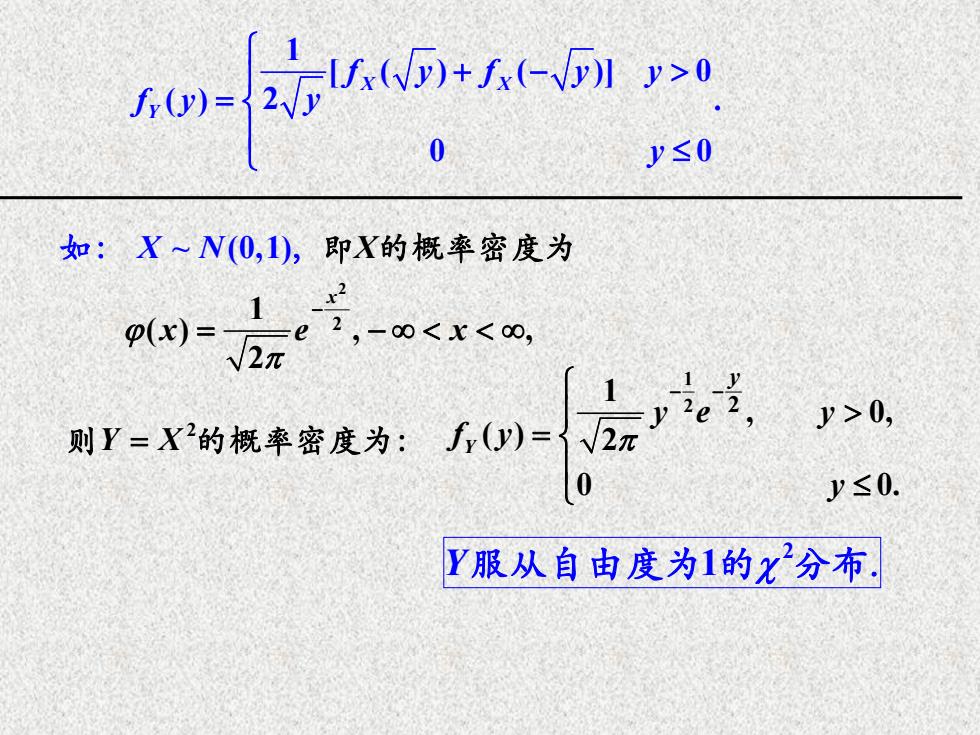 f_Y(y) = { 1/(2√y) [f_X(√y) + f_X(−√y)]  y > 0
0  y ≤ 0 .
如： X ~ N(0,1)，即X的概率密度为
φ(x) = 1/√2π e^(−x²/2) , −∞ < x < ∞,
则Y = X²的概率密度为： f_Y(y) = { 1/√2π y^(−1/2) e^(−y/2) ,  y > 0,
0  y ≤ 0.
Y服从自由度为1的χ²分布.